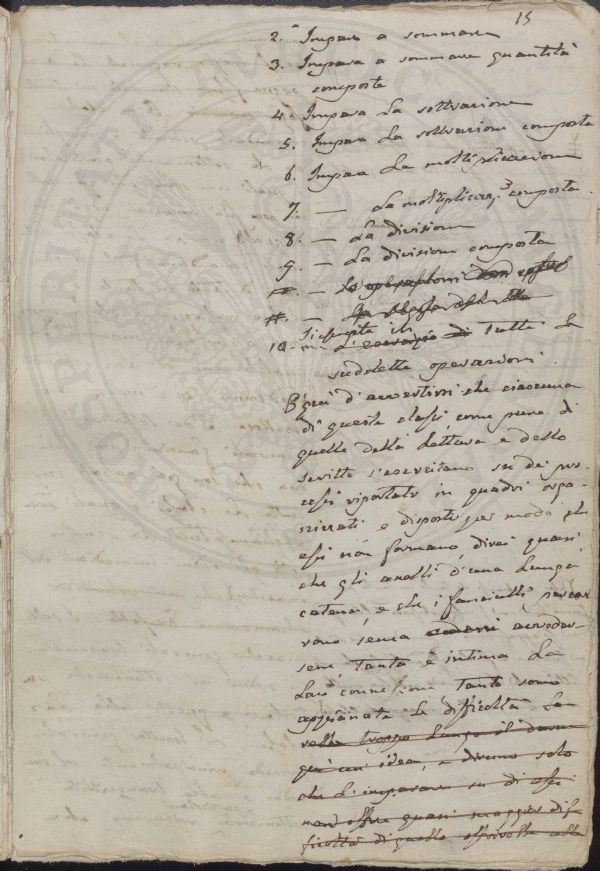 15
2. Impara a sommare
3. Impara a sommare quantità
composte
4. Impara La sottrazione
5. Impara La sottrazione composta
6. Impara La moltiplicazione
7. — La moltiplicaz.e composta
8. — La divisione
9. — La divisione composta
10. L'esercizio di tutte le
suddette operazioni.
È quì d'avvertirsi che ciascuna
di queste classi come pure di
quelle della Lettura e dello
scritto s'esercitano su dei pro-
cessi riportati in quadri orga-
nizzati e disposti per modo che
essi non formano direi quasi
che gli anelli d'una lunga
catena, e che i fanciulli
senza accorger-
sene tanta è intima La
Loro connessione tanto sono
appianate Le difficoltà. Sa-
rebbe troppo Lungo il darne
quì un idea, e diremo solo
che L'imparare su di essi
non offre quasi maggior dif-
ficoltà di quello